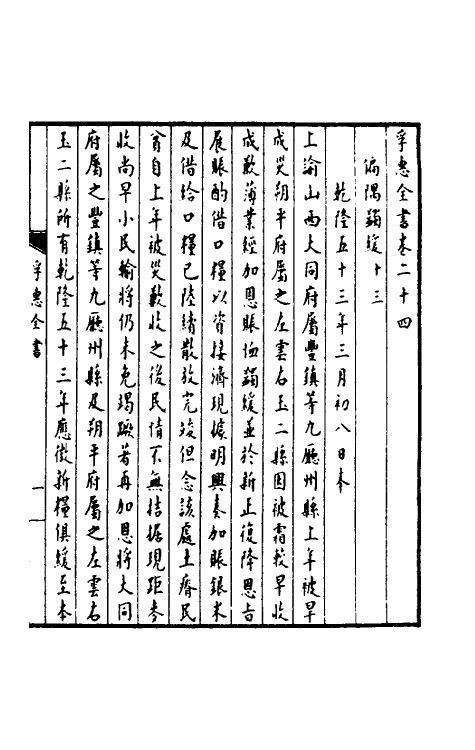 孚惠全書卷二十四
偏隅蠲緩十三
乾隆五十三年三月初八日奉
上諭山西大同府屬豐鎮等九廳州縣上年被旱
成災朔平府屬之左雲右玉二縣因被霜較早收
成歉薄業經加恩賑恤蠲緩並於新正復降恩旨
展賑酌借口糧以資接濟現據明興奏加賑銀米
及借給口糧已陸續散放完竣但念該處土瘠民
貧自上年被災歉收之後民情不無拮据現距麥
收尚早小民輸將仍未免竭蹶著再加恩將大同
府屬之豐鎮等九廳州縣及朔平府屬之左雲右
玉二縣所有乾隆五十三年應徵新糧俱緩至本
孚惠全書
一